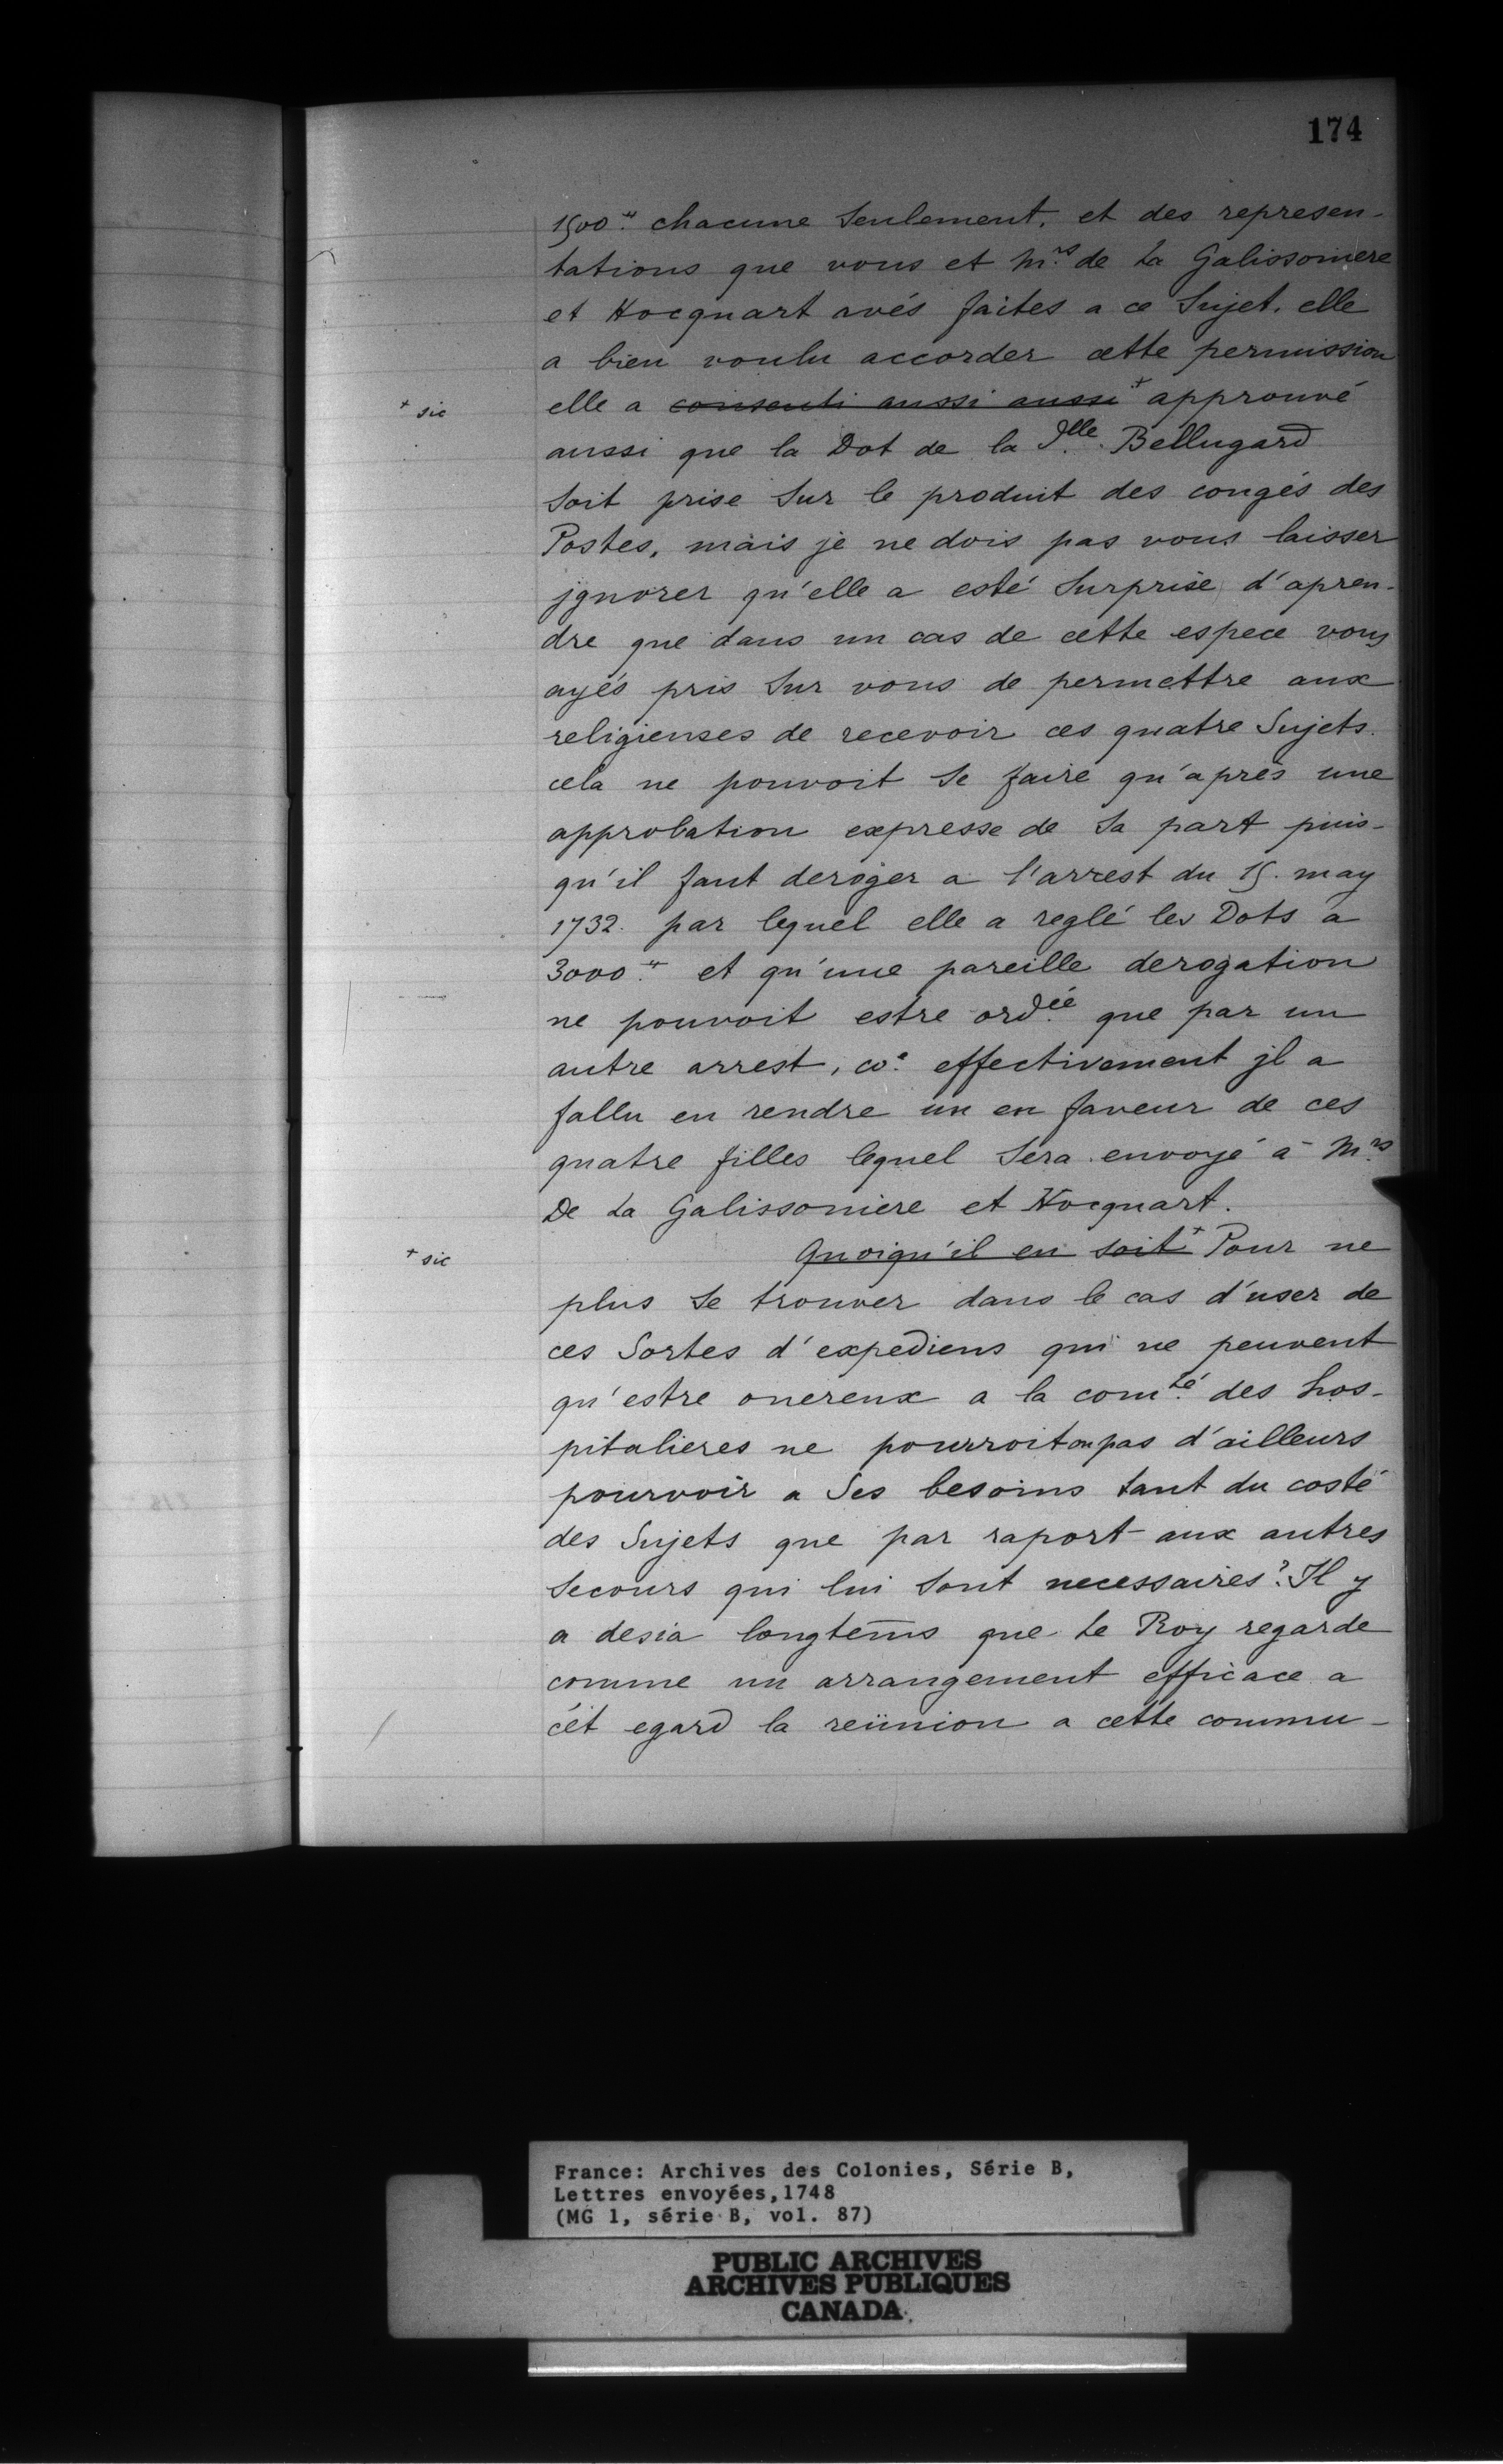 174
1500.ʺ chacune Seulement, et des represen-
tations que vous et M.rs de La Galissoniere
et Hocquart avés faites a ce Sujet. elle
a bien voulu accorder cette permission
+ sic
elle a consenti aussi aussi + approuvé
aussi que la Dot de la D.lle Bellugard
Soit prise Sur le produit des congés des
Postes, mais je ne dois pas vous laisser
jgnorer qu'elle a esté Surprise d'apren-
dre que dans un cas de cette espece vous
ayés pris Sur vous de permettre aux
religieuses de recevoir ces quatre Sujets.
cela ne pouvoit Se faire qu'après une
approbation expresse de Sa part puis-
qu'il faut deroger a l'arrest du 15. may
1732. par lequel elle a reglé les Dots a
3000.ʺ et qu'une pareille derogation
ne pouvoit estre ord.ée que par un
autre arrest, co.e effectivement jl a
fallu en rendre un en faveur de ces
quatre filles lequel Sera envoyé a M.rs
De La Galissoniere et Hocquart.
+ sic
Quoiqu'il en soit + Pour ne
plus Se trouver dans le cas d'user de
ces Sortes d'expediens qui ne peuvent
qu'estre onereux a la com.té des hos-
pitalieres ne pourroit on pas d'ailleurs
pourvoir a Ses besoins tant du costé
des Sujets que par raport aux autres
Secours qui lui Sont necessaires? Il y
a desia longtems que Le Roy regarde
comme un arrangement efficace a
cét egard la reünion a cette commu-
France: Archives des Colonies, Série B,
Lettres envoyées,1748
(MG 1, série B, vol. 87)
PUBLIC ARCHIVES
ARCHIVES PUBLIQUES
CANADA